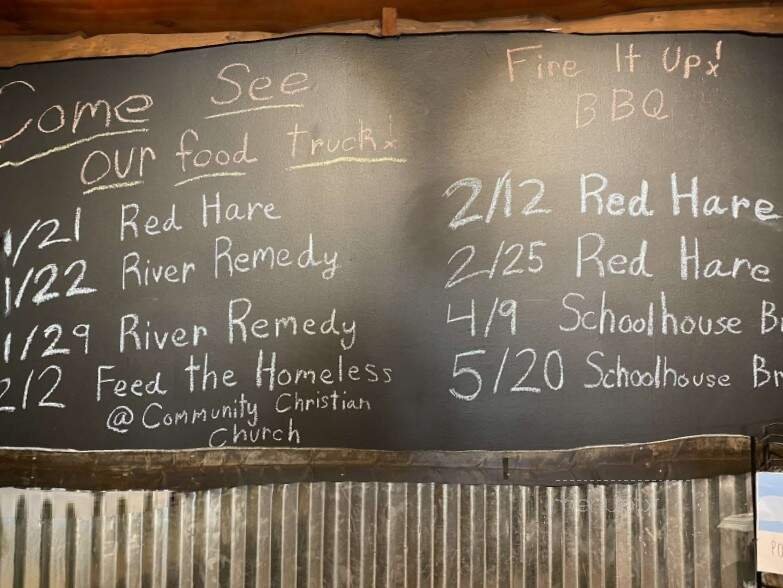 Come See
our food truck!
1/21 Red Hare
1/22 River Remedy
1/29 River Remedy
2/2 Feed the Homeless
@ Community Christian
Church
Fire It Up!
BBQ
2/12 Red Hare
2/25 Red Hare
4/9 Schoolhouse Br
5/20 Schoolhouse Br